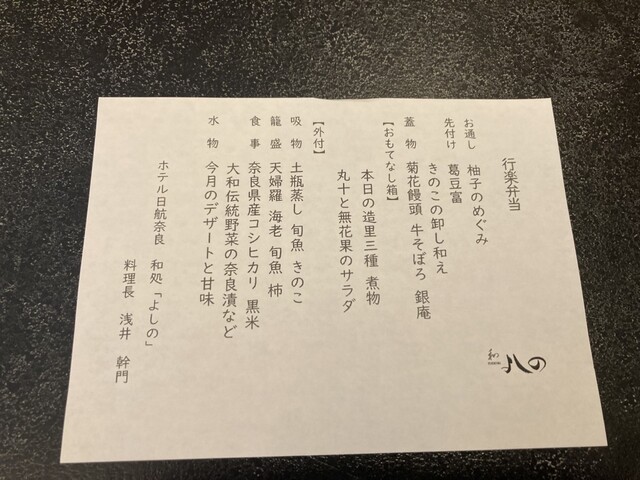 行楽弁当
お通し 柚子のめぐみ
先付け 葛豆富
きのこの卸し和え
蓋物 菊花饅頭 牛そぼろ 銀庵
【おもてなし箱】
本日の造里三種 煮物
丸十と無花果のサラダ
【外付】
吸物 土瓶蒸し 旬魚 きのこ
籠盛 天婦羅 海老 旬魚 柿
食事 奈良県産コシヒカリ 黒米
大和伝統野菜の奈良漬など
水物 今月のデザートと甘味
ホテル日航奈良 和処「よしの」
料理長 浅井 幹門
和
よしの